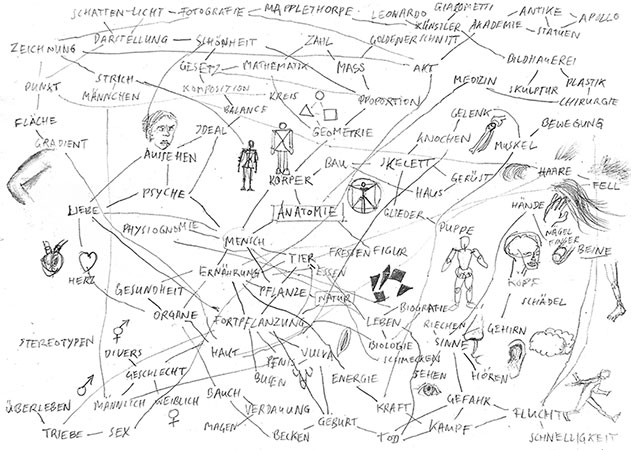 SCHATTEN-LICHT - FOTOGRAFIE MAPPLETHORPE LEONARDO GIACOMETTI ANTIKE APOLLO
KÜNSTLER AKADEMIE STATUEN
ZEICHNUNG DARSTELLUNG SCHÖNHEIT ZAHL GOLDENER SCHNITT
BILDHAUEREI
GESETZ MATHEMATIK MASS AKT
STRICH MEDIZIN SKULPTUR PLASTIK
PUNKT MÄNNCHEN KOMPOSITION KREIS PROPORTION CHIRURGIE
BALANCE GELENK BEWEGUNG
FLÄCHE IDEAL GEOMETRIE KNOCHEN
GRADIENT MUSKEL
AUSSEHEN BAU SKELETT
KÖRPER GERÜST HAARE
PSYCHE HAUS FELL
LIEBE ANATOMIE GLIEDER HÄNDE
PHYSIOGNOMIE PUPPE NAGEL
MENSCH FINGER
TIER FRESSEN FIGUR BEINE
HERZ ERNÄHRUNG ESSEN
GESUNDHEIT PFLANZE KOPF
NATUR BIOGRAFIE SCHÄDEL
ORGANE FORTPFLANZUNG LEBEN RIECHEN
STEREOTYPEN BIOLOGIE SINNE GEHIRN
DIVERS HAUT PENIS VULVA SCHMECKEN
GESCHLECHT BUSEN ENERGIE SEHEN HÖREN
BAUCH
ÜBERLEBEN MÄNNLICH WEIBLICH VERDAUUNG KRAFT GEFAHR FLUCHT
MAGEN GEBURT KAMPF
TRIEBE - SEX BECKEN TOD SCHNELLIGKEIT